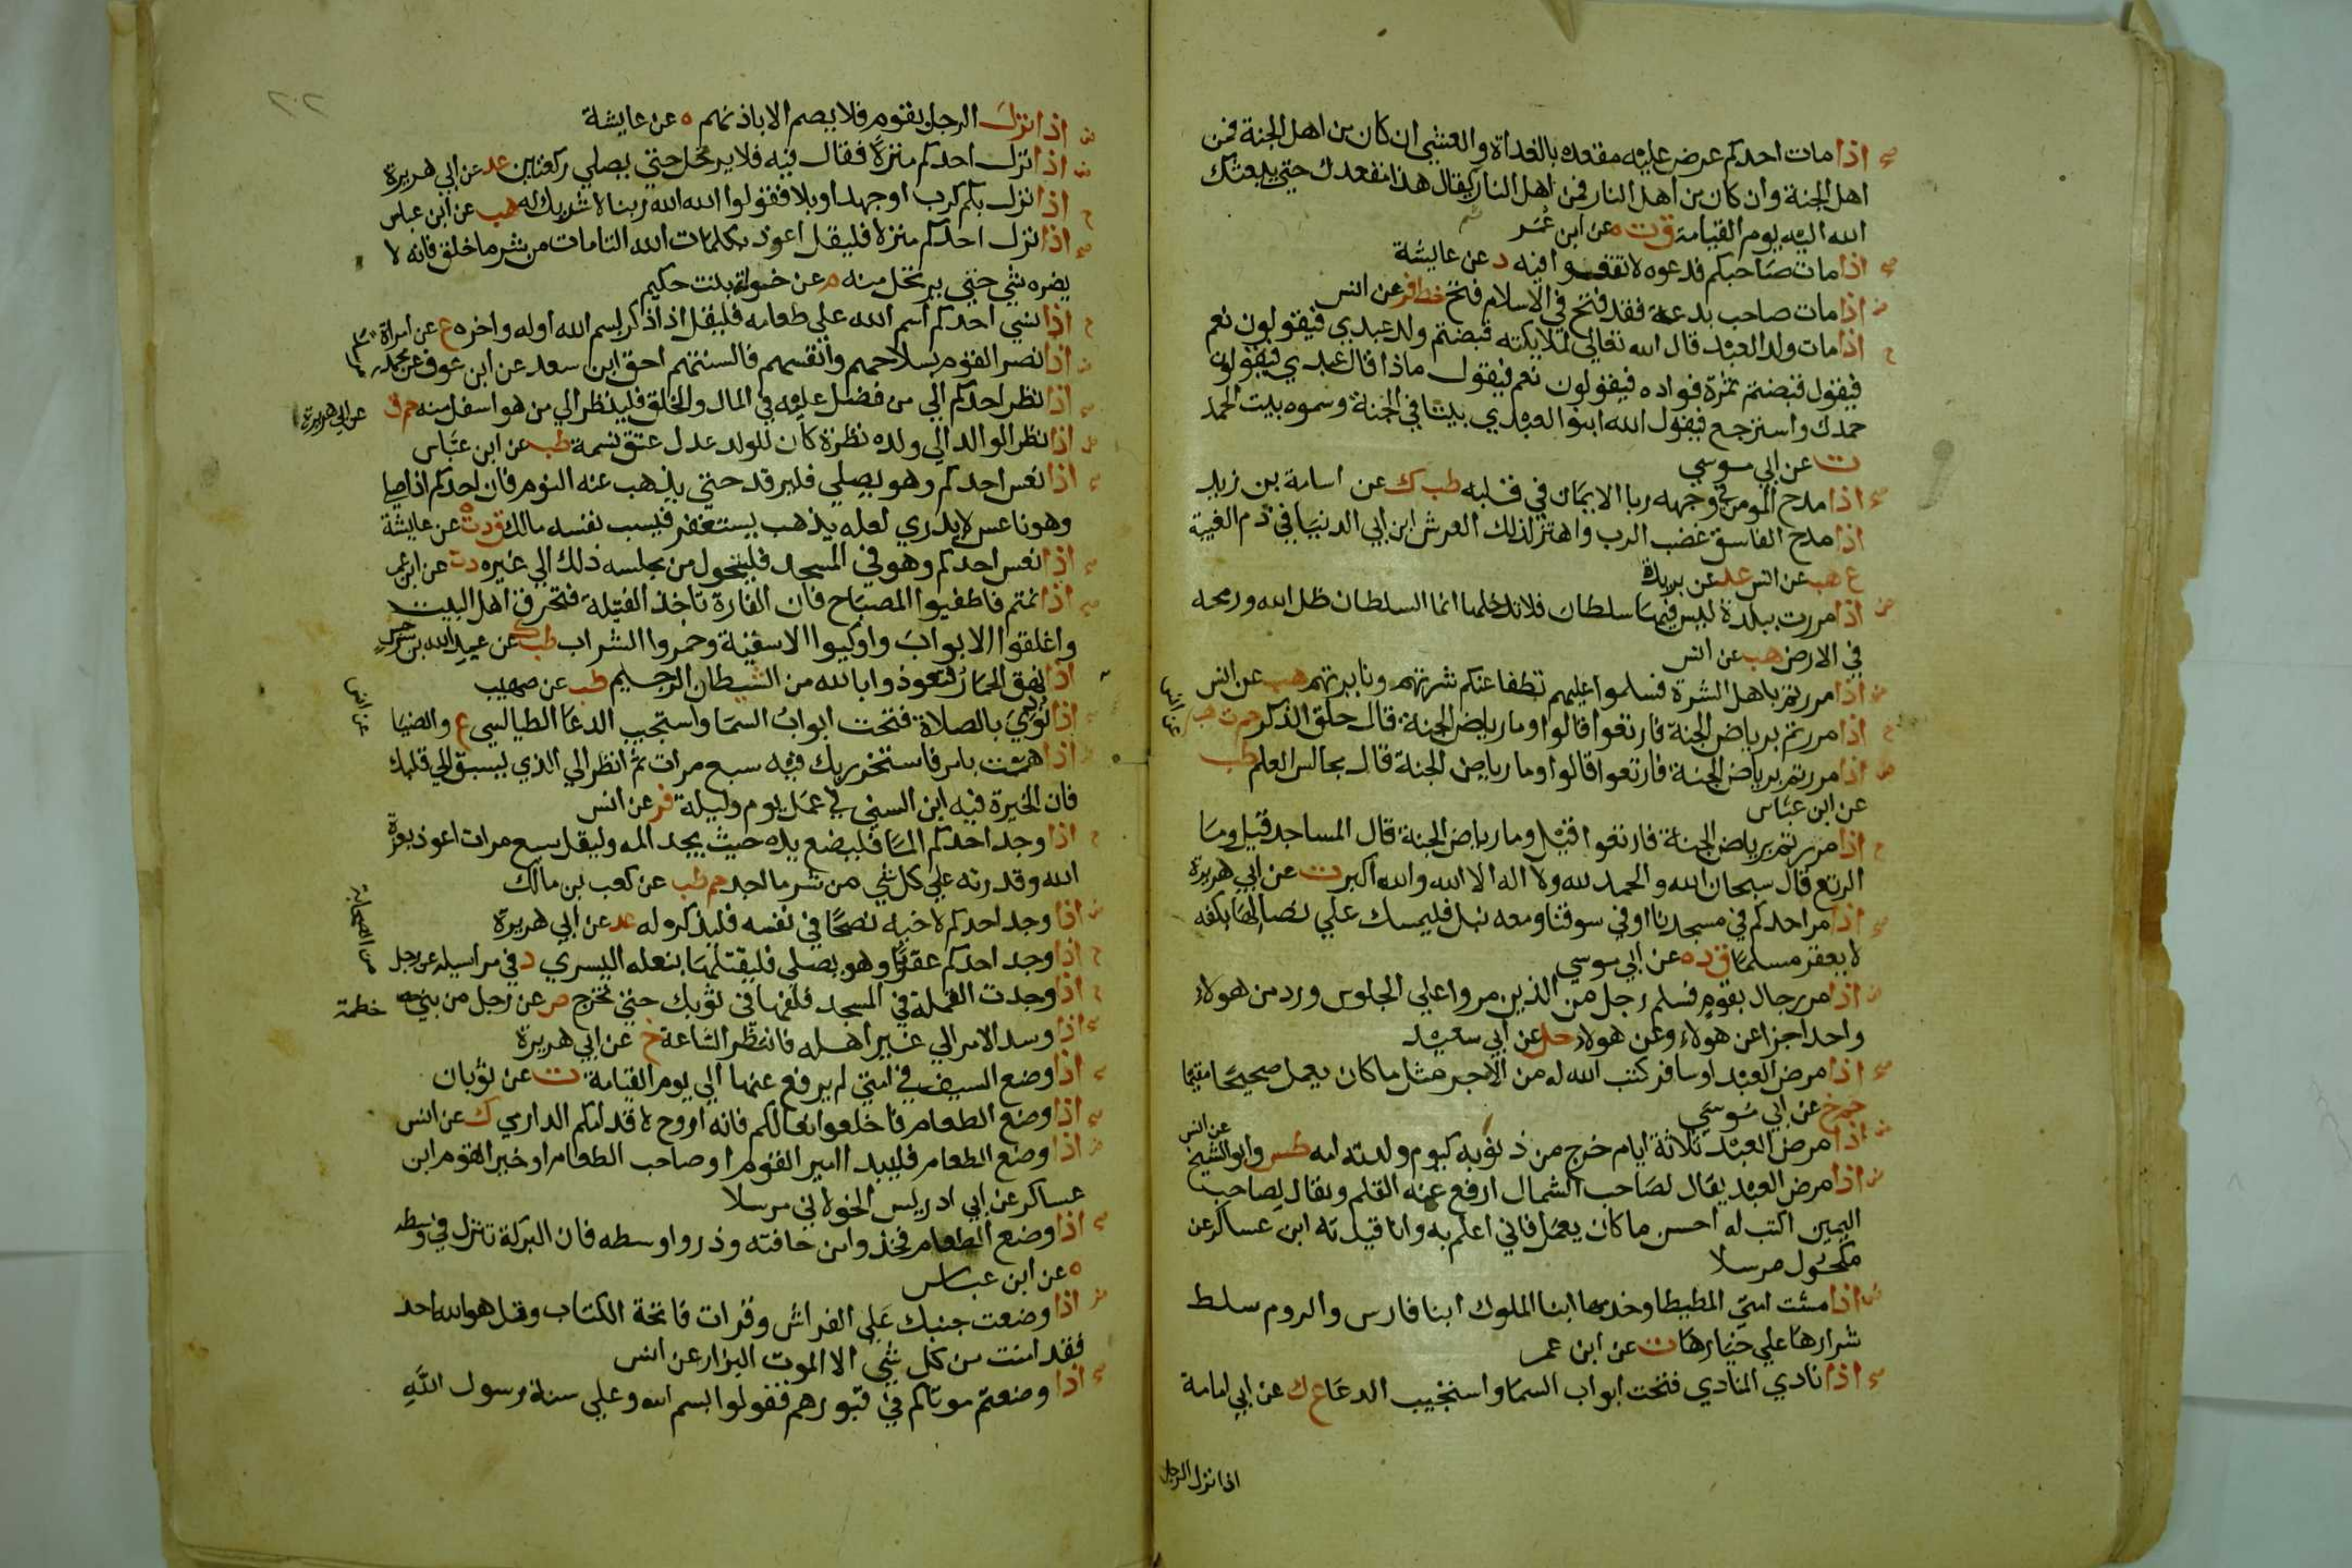 اذا مات احدكم عرض عليه مقعده بالغداة والعشي ان كان من اهل الجنة فمن
اهل الجنة وان كان من اهل النار فمن اهل النار يقال هذا مقعدك حتي يبعثك
الله اليه يوم القيامة ق ت ه عن ابن عمر
اذا مات صاحبكم فدعوه لا تقعوا فيه د عن عايشة
اذا مات صاحب بدعة فقد فتح في الاسلام فتح خط فر عن انس
اذا مات ولد العبد قال الله تعالي لملايكته قبضتم ولد عبدي فيقولون نعم
فيقول قبضتم ثمرة فواده فيقولون نعم فيقول ماذا قال عبدي فيقولون
حمدك واسترجع فيقول الله ابنوا لعبدي بيتا في الجنة وسموه بيت الحمد
ت عن ابي موسي
اذا مدح المومن في وجهه ربا الايمان في قلبه طب ك عن اسامة بن زيد
اذا مدح الفاسق غضب الرب واهتز لذلك العرش ابن ابي الدنيا في ذم الغيبة
ع هب عن انس عد عن بريدة
اذا مررت ببلدة ليس فيها سلطان فلا تدخلها انما السلطان ظل الله ورمحه
في الارض هب عن انس
اذا مررتم باهل الشرة فسلموا عليهم تطفا عنكم شرتهم ونايرتهم هب عن انس
اذا مررتم برياض الجنة فارتعوا قالوا وما رياض الجنة قال حلق الذكر حم ت هب
عن انس
اذا مررتم برياض الجنة فارتعوا قالوا وما رياض الجنة قال مجالس العلم طب
عن ابن عباس
اذا مررتم برياض الجنة فارتعوا قيل وما رياض الجنة قال المساجد قيل وما
الرتع قال سبحان الله والحمد لله ولا اله الا الله والله اكبر ت عن ابي هريرة
اذا مر احدكم في مسجدنا او في سوقنا ومعه نبل فليمسك علي نصالها بكفه
لا يعقر مسلما ق د ه عن ابي موسي
اذا مر رجال بقوم فسلم رجل من الذين مروا علي الجلوس ورد من هولاء
واحد اجزا عن هولاء وعن هولاء حل عن ابي سعيد
اذا مرض العبد او سافر كتب الله له من الاجر مثل ما كان يعمل صحيحا مقيما
حم خ عن ابي موسي
اذا مرض العبد ثلاثة ايام خرج من ذنوبه كيوم ولدته امه طس وابو الشيخ
عن انس
اذا مرض العبد يقال لصاحب الشمال ارفع عنه القلم ويقال لصاحب
اليمين اكتب له احسن ما كان يعمل فاني اعلم به وانا قيدته ابن عساكر عن
مكحول مرسلا
اذا مشت امتي المطيطا وخدمها ابنا الملوك ابنا فارس والروم سلط
شرارها علي خيارها ت عن ابن عمر
اذا نادي المنادي فتحت ابواب السما واستجيب الدعا ع ك عن ابي امامة
اذا نزل الرجل
اذا نزل الرجل بقوم فلا يصم الا باذنهم ه عن عايشة
اذا نزل احدكم منزلا فقال فيه فلا يرتحل حتي يصلي ركعتين عد عن ابي هريرة
اذا نزل بكم كرب او جهد او بلا فقولوا الله الله ربنا لا شريك له هب عن ابن عباس
اذا نزل احدكم منزلا فليقل اعوذ بكلمات الله التامات من شر ما خلق فانه لا
يضره شي حتي يرتحل منه م عن خولة بنت حكيم
اذا نسي احدكم اسم الله علي طعامه فليقل اذا ذكر بسم الله اوله واخره ع عن امراة
اذا نصر القوم بسلاحهم وانفسهم فالسنتهم احق ابن سعد عن ابن عوف عن محمد
اذا نظر احدكم الي من فضل عليه في المال والخلق فلينظر الي من هو اسفل منه حم ق
عن ابي هريرة
اذا نظر الوالد الي ولده نظرة كان للولد عدل عتق نسمة طب عن ابن عباس
اذا نعس احدكم وهو يصلي فليرقد حتي يذهب عنه النوم فان احدكم اذا صلي
وهو ناعس لا يدري لعله يذهب يستغفر فيسب نفسه مالك ق د ت ه عن عايشة
اذا نعس احدكم وهو في المسجد فليتحول من مجلسه ذلك الي غيره د ت عن ابن عمر
اذا نمتم فاطفيوا المصباح فان الفارة تاخذ الفتيلة فتحرق اهل البيت
واغلقوا الابواب واوكيوا الاسقية وخمروا الشراب طب ك عن عبد الله بن سرجس
اذا نهق الحمار فتعوذوا بالله من الشيطان الرجيم طب عن صهيب
اذا نودي بالصلاة فتحت ابواب السما واستجيب الدعا الطيالسي ع والضيا
عن انس
اذا هممت بامر فاستخر ربك فيه سبع مرات ثم انظر الي الذي يسبق الي قلبك
فان الخيرة فيه ابن السني في عمل يوم وليلة فر عن انس
اذا وجد احدكم الما فليضع يده حيث يجد المه وليقل سبع مرات اعوذ بعزة
الله وقدرته علي كل شي من شر ما اجد حم طب عن كعب بن مالك
اذا وجد احدكم لاخيه نصحا في نفسه فليذكره له عد عن ابي هريرة
اذا وجد احدكم عقربا وهو يصلي فليقتلها بنعله اليسري د في مراسيله عن رجل
من الصحابة
اذا وجدت القملة في المسجد فلفها في ثوبك حتي تخرج ص عن رجل من بني خطمة
اذا وسد الامر الي غير اهله فانتظر الساعة خ عن ابي هريرة
اذا وضع السيف في امتي لم يرفع عنها الي يوم القيامة ت عن ثوبان
اذا وضع الطعام فاخلعوا نعالكم فانه اروح لاقدامكم الدارمي ك عن انس
اذا وضع الطعام فليبدا امير القوم او صاحب الطعام او خير القوم ابن
عساكر عن ابي ادريس الخولاني مرسلا
اذا وضع الطعام فخذوا من حافته وذروا وسطه فان البركة تنزل في وسطه
ه عن ابن عباس
اذا وضعت جنبك علي الفراش وقرات فاتحة الكتاب وقل هو الله احد
فقد امنت من كل شي الا الموت البزار عن انس
اذا وضعتم موتاكم في قبورهم فقولوا بسم الله وعلي سنة رسول الله